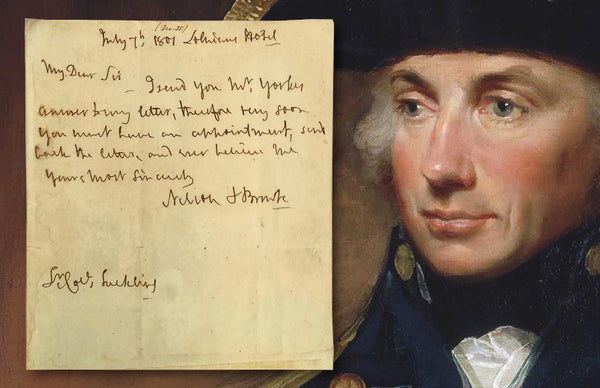 July 7th 1801 Lothians Hotel
My Dear Sir
I send you Mr. Yorkes
answer to my letter, therefore very soon
you must have an appointment, send
back the letter, and ever believe me
yours most sincerely
Nelson & Bronte
Suckling